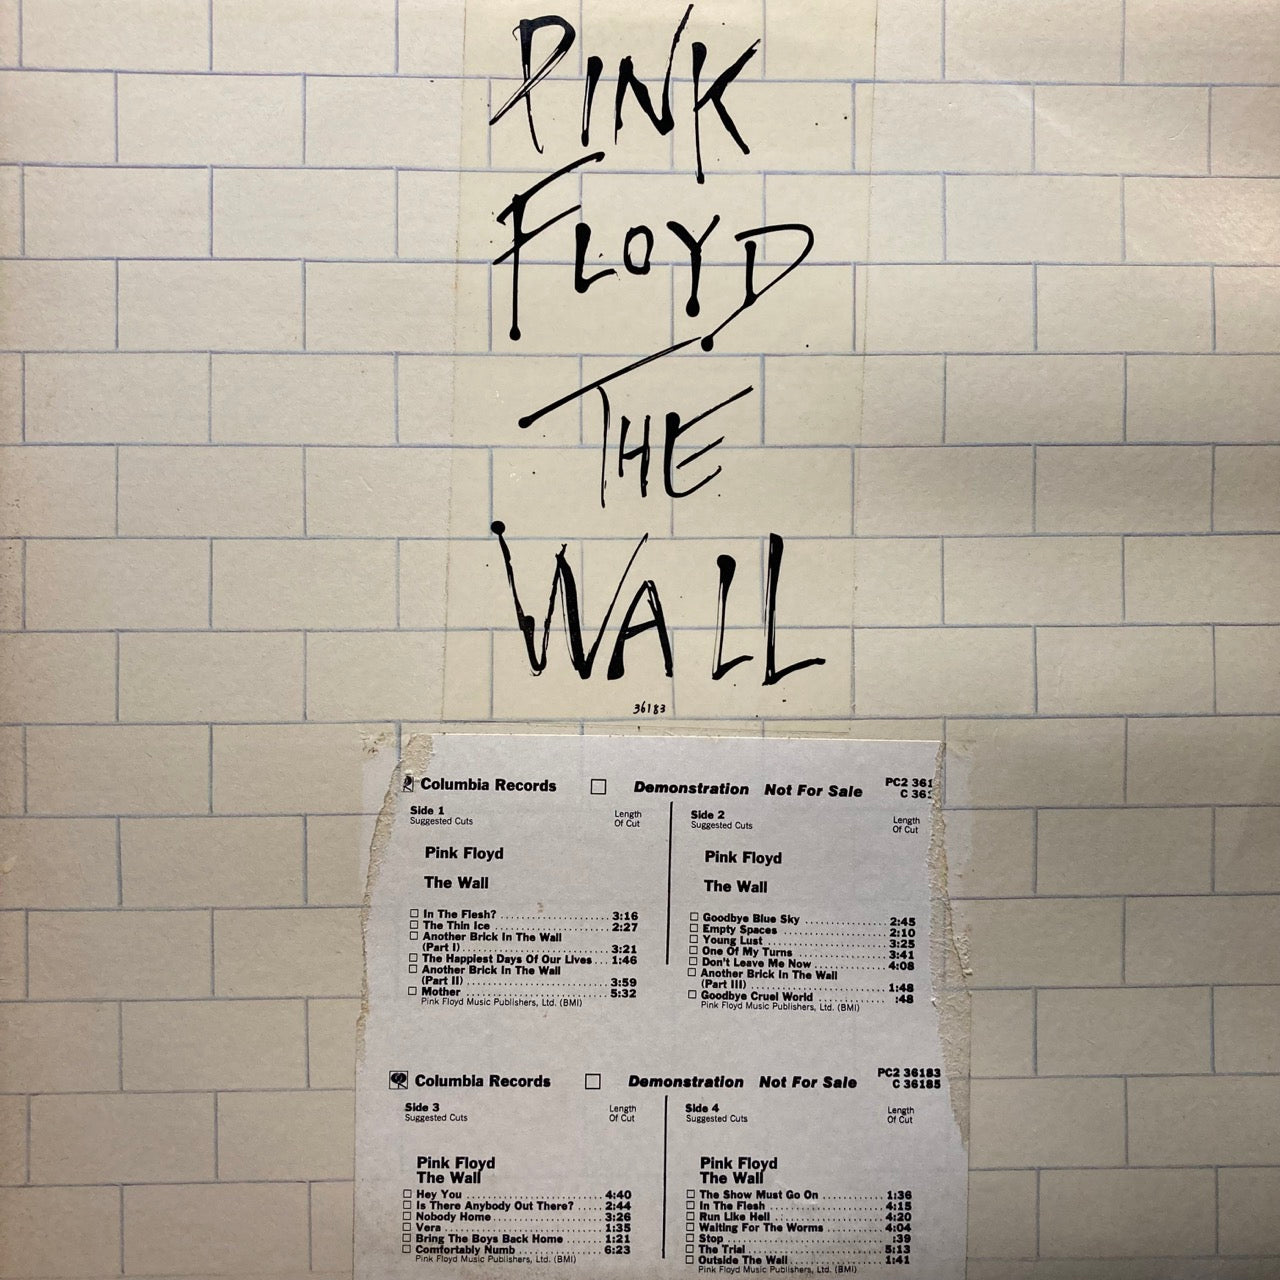 PINK
FLOYD
THE
WALL
36183
Columbia Records ☐ Demonstration Not For Sale PC2 361
C 36
Side 1
Suggested Cuts
Length
Of Cut
Pink Floyd
The Wall
☐ In The Flesh? 3:16
☐ The Thin Ice 2:27
☐ Another Brick In The Wall
(Part I) 3:21
☐ The Happiest Days Of Our Lives 1:46
☐ Another Brick In The Wall
(Part II) 3:59
☐ Mother 5:32
Pink Floyd Music Publishers, Ltd. (BMI)
Side 2
Suggested Cuts
Length
Of Cut
Pink Floyd
The Wall
☐ Goodbye Blue Sky 2:45
☐ Empty Spaces 2:10
☐ Young Lust 3:25
☐ One Of My Turns 3:41
☐ Don't Leave Me Now 4:08
☐ Another Brick In The Wall
(Part III) 1:48
☐ Goodbye Cruel World :48
Pink Floyd Music Publishers, Ltd. (BMI)
Columbia Records ☐ Demonstration Not For Sale PC2 36183
C 36185
Side 3
Suggested Cuts
Length
Of Cut
Pink Floyd
The Wall
☐ Hey You 4:40
☐ Is There Anybody Out There? 2:44
☐ Nobody Home 3:26
☐ Vera 1:35
☐ Bring The Boys Back Home 1:21
☐ Comfortably Numb 6:23
Pink Floyd Music Publishers, Ltd. (BMI)
Side 4
Suggested Cuts
Length
Of Cut
Pink Floyd
The Wall
☐ The Show Must Go On 1:36
☐ In The Flesh 4:15
☐ Run Like Hell 4:20
☐ Waiting For The Worms 4:04
☐ Stop :39
☐ The Trial 5:13
☐ Outside The Wall 1:41
Pink Floyd Music Publishers, Ltd. (BMI)